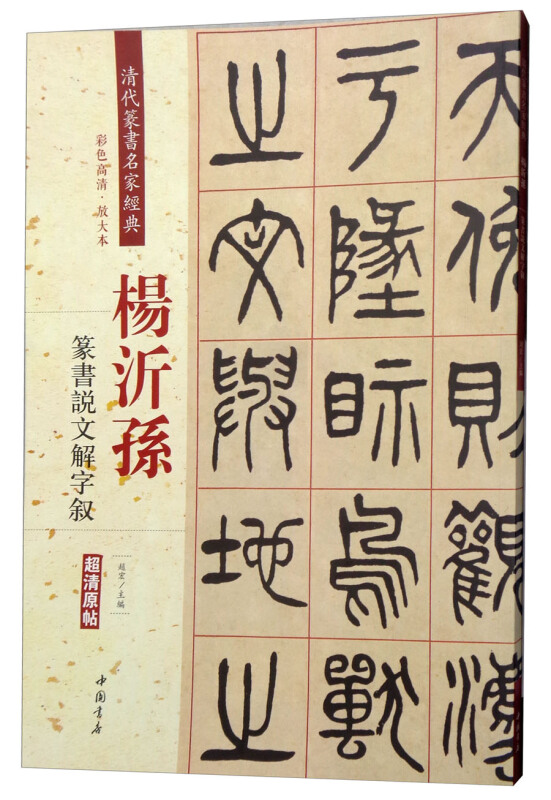 清代篆書名家經典
彩色高清·放大本
楊沂孫
篆書説文解字叙
超清原帖
趙宏/主編
中国書店
天俛則觀灋
于墬眎鳥獸
之文與地之